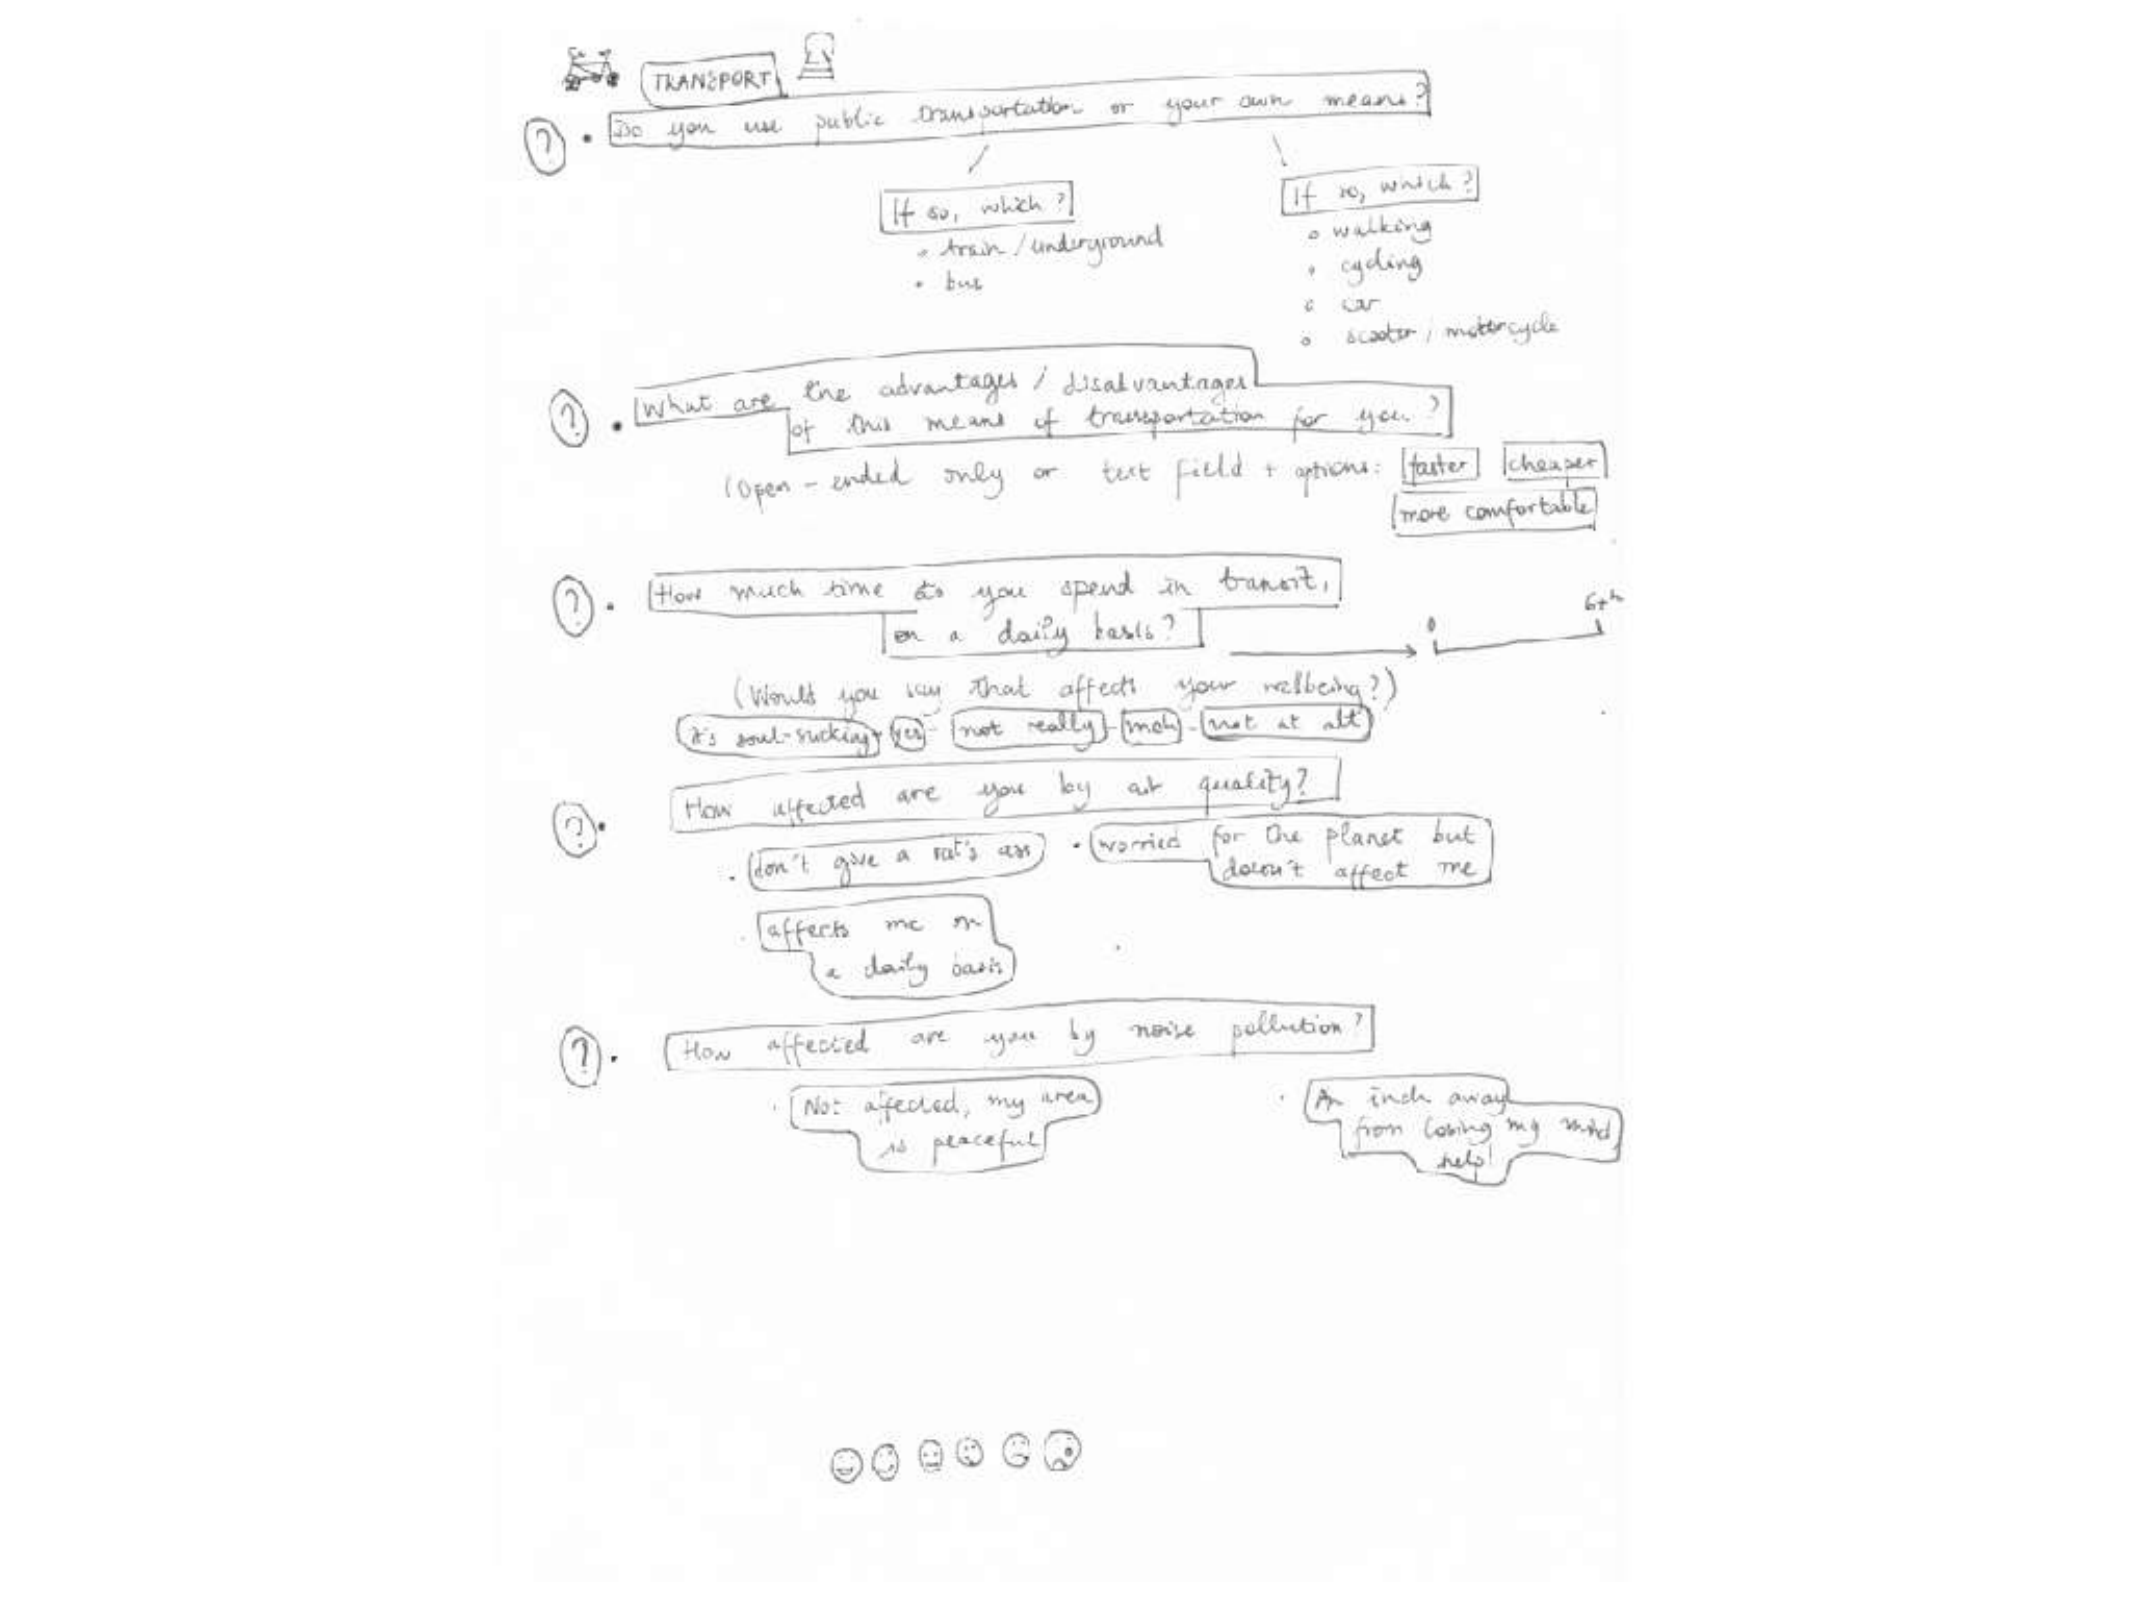 TRANSPORT
? • Do you use public transportation or your own means?
If so, which?
• train / underground
• bus
If so, which?
o walking
o cycling
o car
o scooter / motorcycle
? • What are the advantages / disadvantages
of this means of transportation for you?
(Open-ended only or text field + options: faster cheaper
more comfortable
? • How much time do you spend in transit,
on a daily basis?
0 6+h
(Would you say that affects your wellbeing?)
it's soul-sucking - yes - not really - meh - not at all
? • How affected are you by air quality?
• don't give a rat's ass • worried for the planet but
doesn't affect me
• affects me on
a daily basis
? • How affected are you by noise pollution?
• Not affected, my area
is peaceful
• An inch away
from losing my mind,
help!